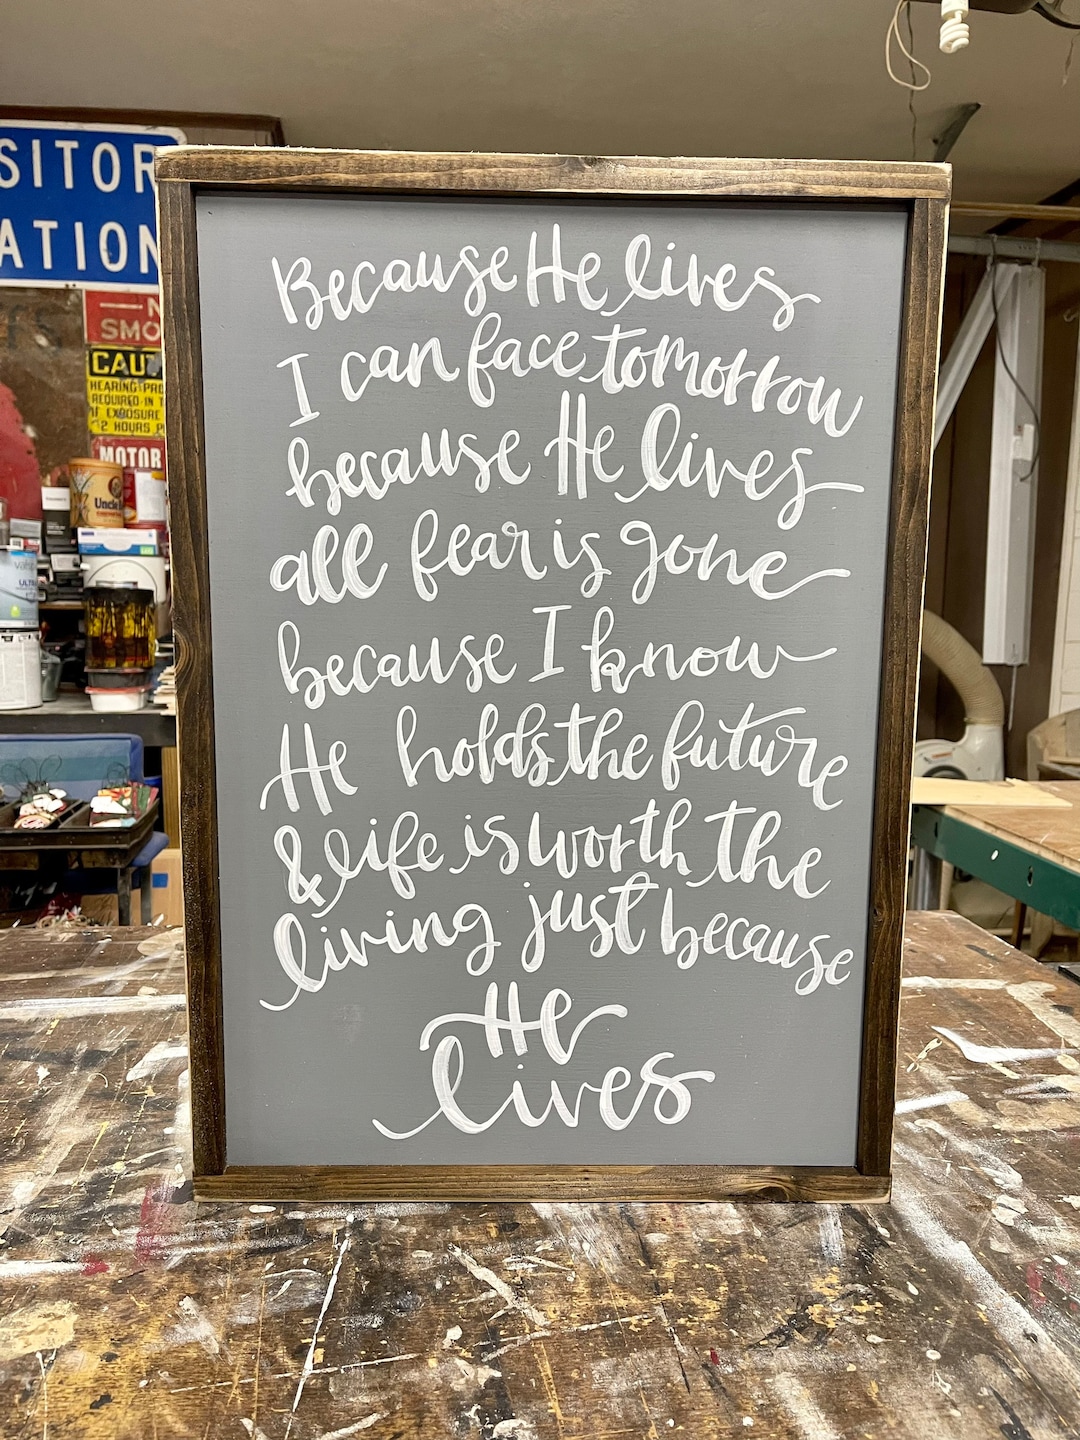 SITOR
ATION
SMO
CAU
HEARING PRO
REQUIRED IN T
IF EXPOSURE
2 HOURS
MOTOR
Uncle
Because He lives
I can face tomorrow
because He lives
all fear is gone
because I know
He holds the future
& life is worth the
living just because
He
lives